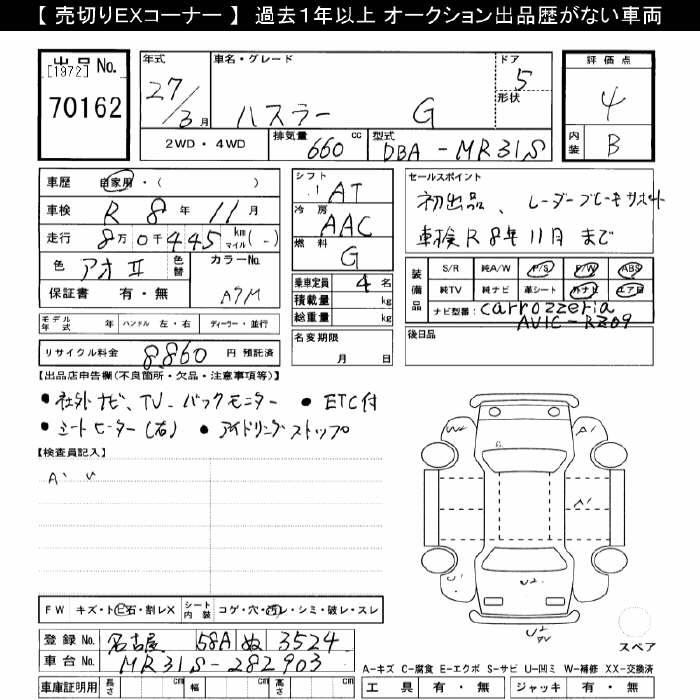 【 売切りEXコーナー 】 過去1年以上 オークション出品歴がない車両
出品No.
[1972]
70162
年式 27/3月
車名・グレード ハスラー G
ドア 5
形状
評価点 4
内装 B
2WD・4WD 排気量 660 cc 型式 DBA-MR31S
車歴 自家用・( )
車検 R 8年 11月
走行 8万0千445 km マイル(-)
色 アオⅡ 色替 カラーNo. A7M
保証書 有・無
シフト AT
冷房 AAC
燃料 G
乗車定員 4名
積載量 kg
総重量 kg
セールスポイント
初出品、レーダーブレーキサポート
車検R8年11月まで
装備品 S/R 純A/W P/S P/W ABS
純TV 純ナビ 革シート 外ナビ エア日
ナビ型番: carrozzeria
AVIC-RZ09
モデル年式 年 ハンドル 左・右 ディーラー・並行
名変期限 月 日
後日品
リサイクル料金 8,860 円 預託済
【出品店申告欄(不良箇所・欠品・注意事項等)】
• 社外ナビ、TV、バックモニター • ETC付
• シートヒーター(右) • アイドリングストップ
【検査員記入】
A' U
W2 A1
A1
U1 U2 U1
U2
FW キズ・ト ビ石・割レX シート内装 コゲ・穴・スレ・シミ・破レ・スレ
登録No. 名古屋 58A ぬ 3524
車台No. MR31S-282903
スペア
A-キズ C-腐食 E-エクボ S-サビ U-凹ミ W-補修 XX-交換済
車庫証明用 長さ cm 幅 cm 高さ cm
工具 有・無 ジャッキ 有・無